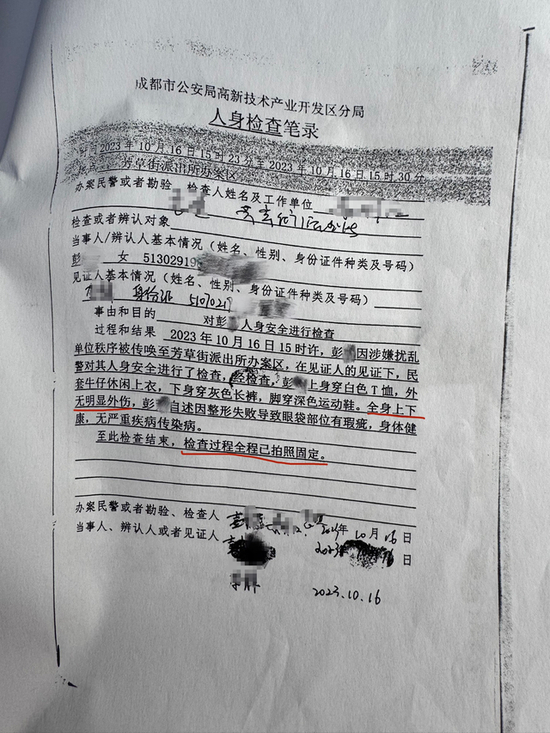 成都市公安局高新技术产业开发区分局
人身检查笔录
2023年10月16日15时23分至2023年10月16日15时30分
芳草街派出所办案区
办案民警或者勘验、检查人姓名及工作单位
检查或者辨认对象
当事人/辨认人基本情况（姓名、性别、身份证件种类及号码）
彭 女 513029198
见证人基本情况（姓名、性别、身份证件种类及号码）
身份证 5107021
事由和目的 对彭 人身安全进行检查
过程和结果 2023年10月16日15时许，彭 因涉嫌扰乱
单位秩序被传唤至芳草街派出所办案区，在见证人的见证下，民
警对其人身安全进行了检查，经检查，彭 上身穿白色T恤，外
套牛仔休闲上衣，下身穿灰色长裤，脚穿深色运动鞋。全身上下
无明显外伤，彭 自述因整形失败导致眼袋部位有瑕疵，身体健
康，无严重疾病传染病。
至此检查结束，检查过程全程已拍照固定。
办案民警或者勘验、检查人 年10月16日
当事人、辨认人或者见证人 2023 16日
2023.10.16